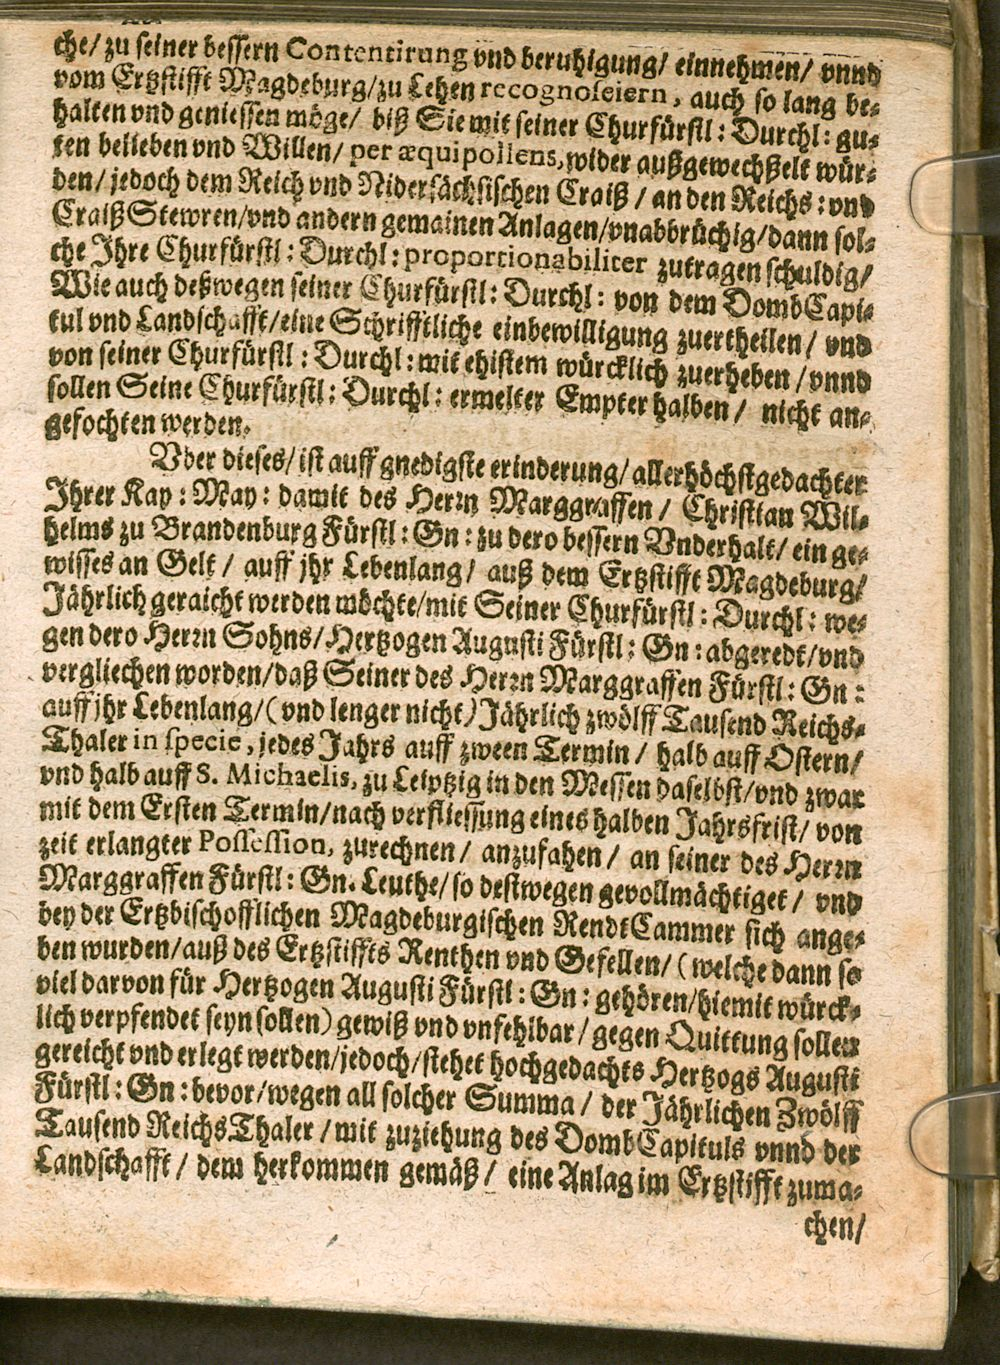 che/ zu seiner bessern Contentirung vnd beruhigung/ einnehmen/ vnnd
vom Ertzstifft Magdeburg/ zu Lehen recognosciern, auch so lang be-
halten vnd geniessen möge/ biß Sie mit seiner Churfürstl: Durchl: gu-
ten belieben vnd Willen/ per æquipollens, wider außgewechßelt wür-
den/ jedoch dem Reich vnd Nidersächsischen Craiß / an den Reichs: vnd
CraißStewren/ vnd andern gemainen Anlagen/ vnabbrüchig/ dann sol-
che Ihre Churfürstl: Durchl: proportionabiliter zutragen schuldig/
Wie auch deßwegen seiner Churfürstl: Durchl: von dem DombCapi-
tul vnd Landschafft/ eine Schrifftliche einbewilligung zuertheilen/ vnd
von seiner Churfürstl: Durchl: mit ehistem würcklich zuerheben / vnnd
sollen Seine Churfürstl: Durchl: ermelter Empter halben / nicht an-
gefochten werden.
Vber dieses/ ist auff gnedigste erinderung/ allerhöchstgedachter
Ihrer Kay: May: damit des Herrn Marggraffen / Christian Wil-
helms zu Brandenburg Fürstl: Gn: zu dero bessern Vnderhalt/ ein ge-
wisses an Gelt / auff jhr Lebenlang/ auß dem Ertzstifft Magdeburg/
Jährlich geraicht werden möchte/ mit Seiner Churfürstl: Durchl: we-
gen dero Herrn Sohns/ Hertzogen Augusti Fürstl: Gn: abgeredt/ vnd
vergliechen worden/ daß Seiner des Herrn Marggraffen Fürstl: Gn:
auff jhr Lebenlang/ (vnd lenger nicht) Jährlich zwölff Tausend Reichs-
Thaler in specie, jedes Jahrs auff zween Termin / halb auff Ostern/
vnd halb auff S. Michaelis, zu Leiptzig in den Messen daselbst/ vnd zwar
mit dem Ersten Termin/ nach verfliessung eines halben Jahrsfrist/ von
zeit erlangter Possession, zurechnen / anzufahen / an seiner des Herrn
Marggraffen Fürstl: Gn. Leuthe/ so destwegen gevollmächtiget / vnd
bey der Ertzbischofflichen Magdeburgischen RendtCammer sich ange-
ben wurden/ auß des Ertzstiffts Renthen vnd Gefellen/ (welche dann so
viel darvon für Hertzogen Augusti Fürstl: Gn: gehören/ hiemit würck-
lich verpfendet seyn sollen) gewiß vnd vnfehlbar / gegen Quittung sollen
gereicht vnd erlegt werden/ jedoch/ stehet hochgedachts Hertzogs Augusti
Fürstl: Gn: bevor/ wegen all solcher Summa / der Jährlichen Zwölff
Tausend ReichsThaler / mit zuziehung des DombCapituls vnnd der
Landschafft / dem herkommen gemäß / eine Anlag im Ertzstifft zuma-
chen/